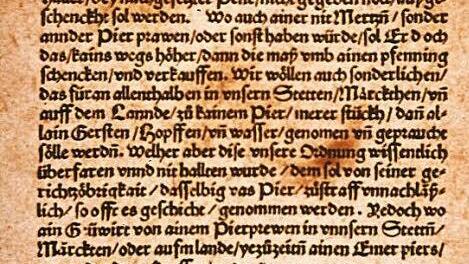 schenckht sol werden. Wo auch ainer nit Mertzn̄ / sonder
annder Pier prawen / oder sonst haben würde / sol Er doch
das / kains wegs höher / dann die maß vmb ainen pfenning
schencken / vnd verkauffen. Wir wöllen auch sonderlichen /
das füran allenthalben in vnsern Stetten / Märckthen / vn̄
auff dem Lannde / zů kainem Pier / merer stückh / dan̄ al-
lain Gersten / Hopffen / vn̄ wasser / genomen vn̄ gepraucht
sölle werdn̄. Welher aber dise vnsere Ordnung wissentlich
überfaren vnnd nit hallten wurde / dem sol von seiner ge-
richtzöbrigkait / dasselbig vas Pier / zůstraff vnnachläß-
lich / so offt es geschicht / genommen werden. Yedoch wo
ain Gūwirt von ainem Pierprewen in vnnsern Stettn̄ /
Märckten / oder aufm lande / yezůzeitn̄ ainen Emer piers /